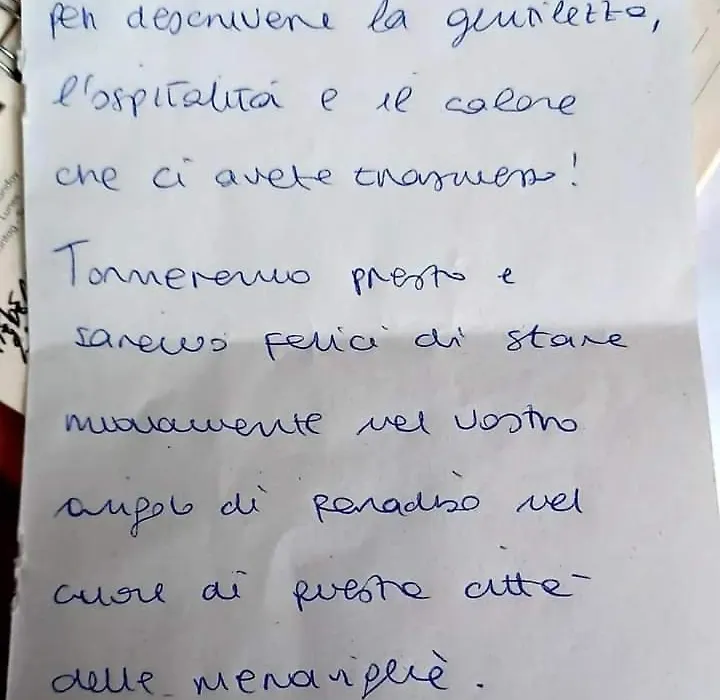 per descrivere la gentilezza,
l'ospitalità e il calore
che ci avete trasmesso!
Torneremo presto e
saremo felici di stare
nuovamente nel vostro
angolo di paradiso nel
cuore di questa città
delle meraviglie.